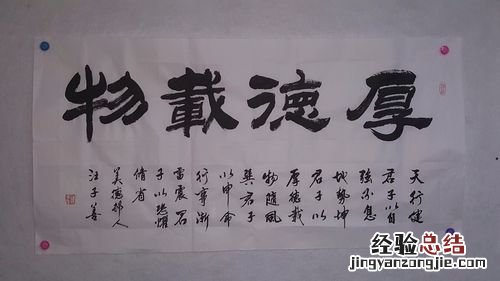 厚德載物
天行健
君子以自
强不息
地势坤
君子以
厚德载
物随风
巽君子
以申命
行事洊
雷震君
子以恐懼
脩省
美德
汪子善
经验总结
jingyanzongjie.com